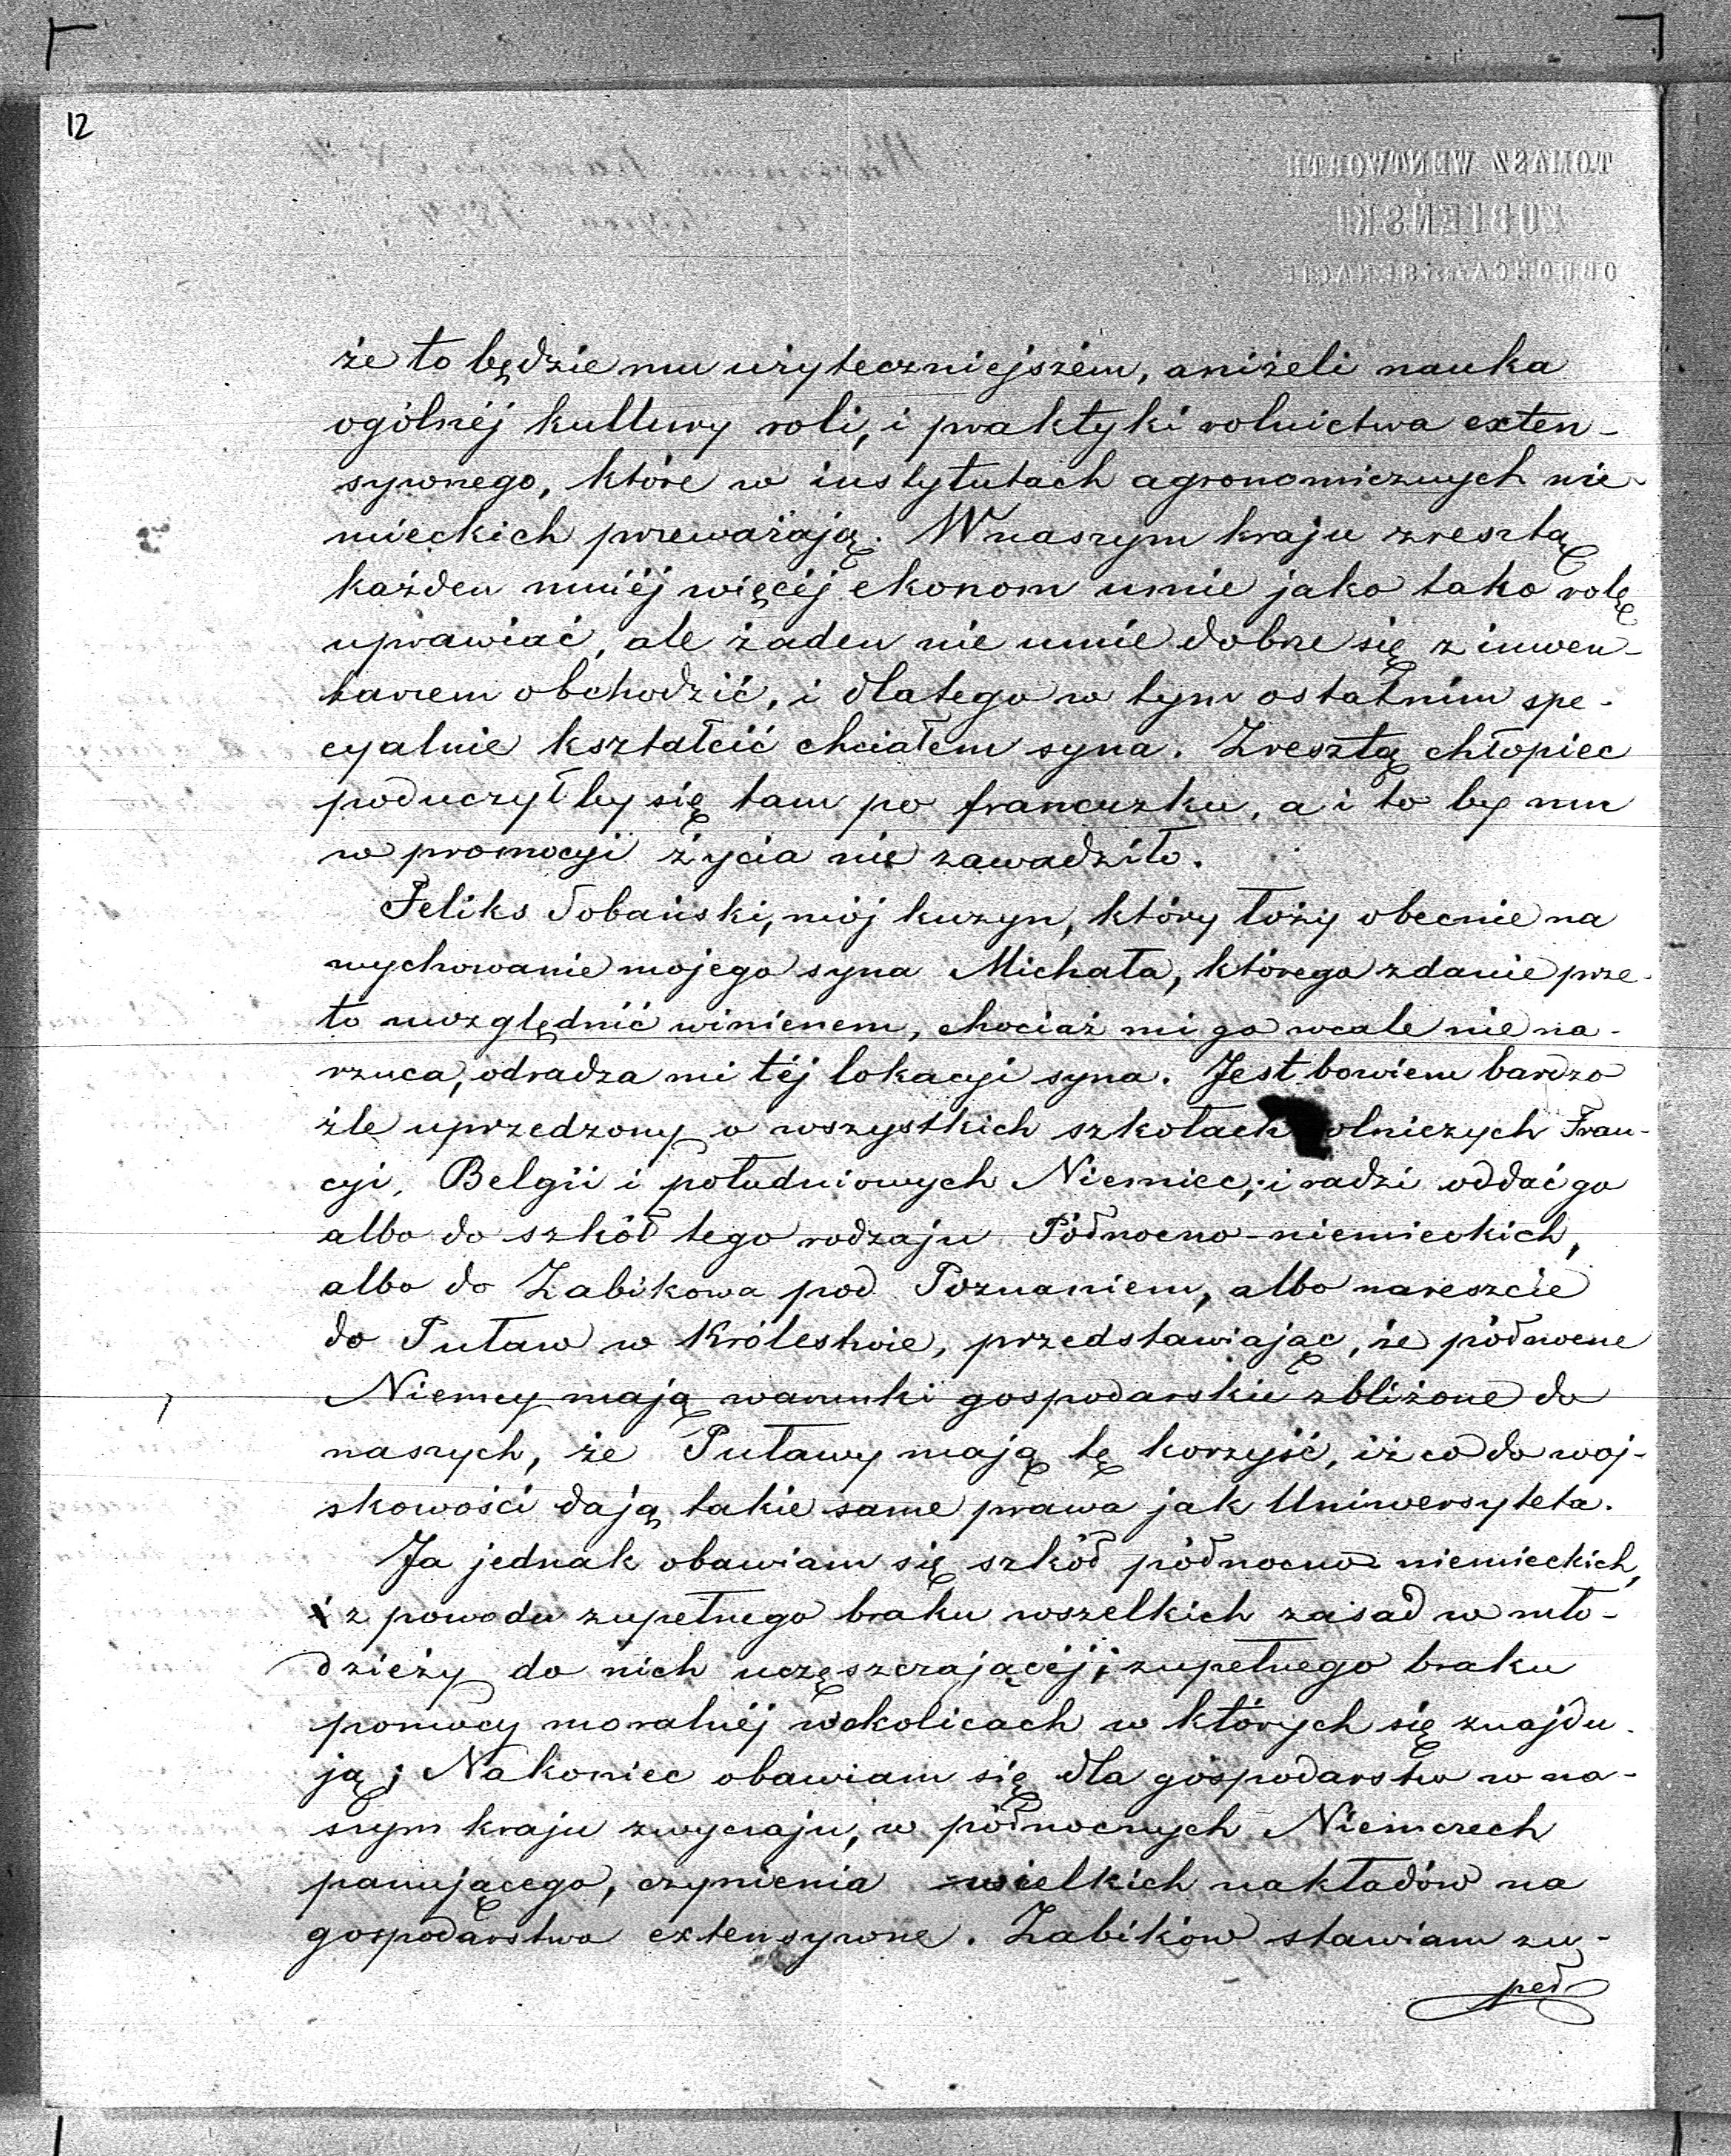 12
że to będzie mu użyteczniejszém, aniżeli nauka
ogólnéj kultury roli, i praktyki rolnictwa exten-
sywnego, które w instytutach agronomicznych nie-
mieckich przeważają. W naszym kraju zresztą
każden mniéj więcéj ekonom umie jako tako rolę
uprawiać, ale żaden nie umie dobrze się z inwen-
tarzem obchodzić, i dlatego w tym ostatnim spe-
cyalnie kształcić chciałem syna. Zresztą chłopiec
poduczyłby się tam po francuzku, a i to by mu
w promocyi życia nie zawadziło.
Feliks Sobański, mój kuzyn, który łoży obecnie na
wychowanie mojego syna Michała, którego zdanie prze-
to uwzględnić winienem, chociaż mi go wcale nie na-
rzuca, odradza mi téj lokacyi syna. Jest bowiem bardzo
źle uprzedzony o wszystkich szkołach olniczych Fran-
cyi, Belgii i południowych Niemiec; i radzi oddać go
albo do szkół tego rodzaju Północno-niemieckich,
albo do Żabikowa pod Poznaniem, albo nareszcie
do Puław w Królestwie, przedstawiając, że północne
Niemcy mają warunki gospodarskie zbliżone do
naszych, że Puławy mają tę korzyść, iż co do woj-
skowości dają takie same prawa jak Uniwersyteta.
Ja jednak obawiam się szkół północno niemieckich,
z powodu zupełnego braku wszelkich zasad w mło-
dzieży do nich uczęszczającéj; zupełnego braku
pomocy moralnéj w okolicach w których się znajdu-
ją; Nakoniec obawiam się dla gospodarstw w na-
szym kraju zwyczaju, w północnych Niemczech
panującego, czynienia wielkich nakładów na
gospodarstwa extensywne. Żabików stawiam zu-
peł